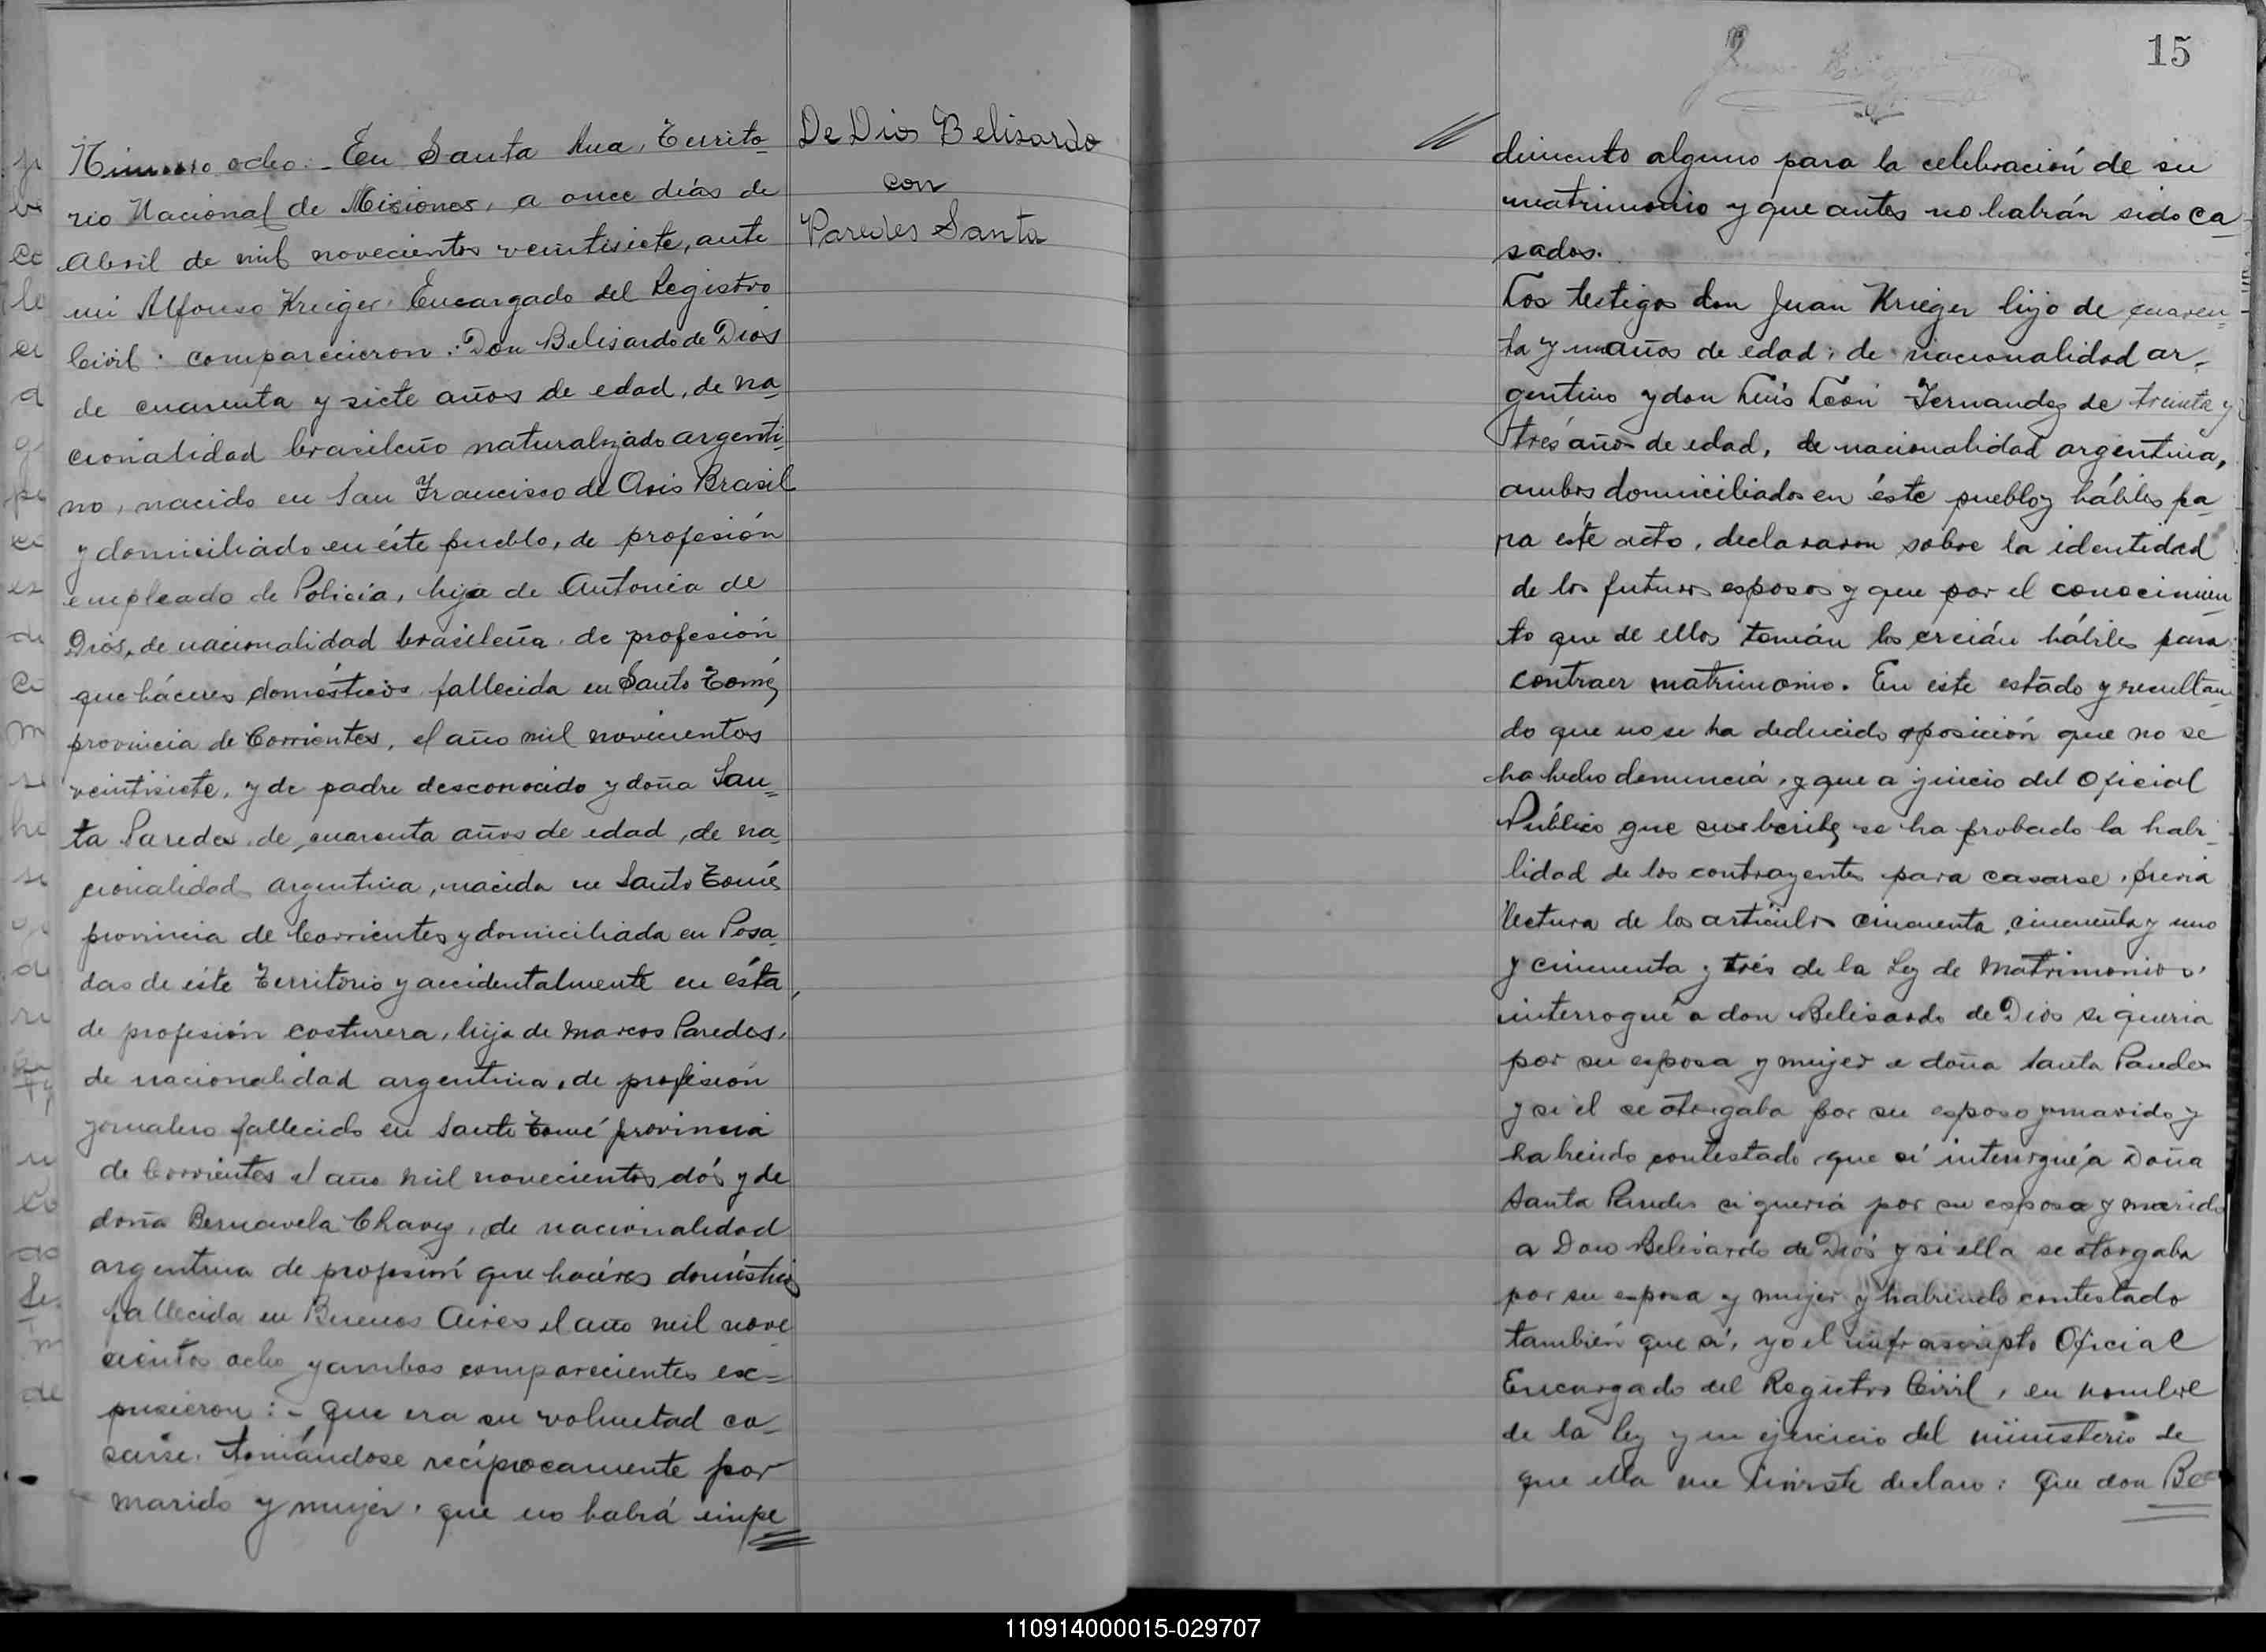 Número ocho. - En Santa Ana, Territo=
rio Nacional de Misiones, a once días de
Abril de mil novecientos veintisiete, ante
mi Alfonso Krieger, Encargado del Registro
Civil: comparecieron: Don Belisardo de Dios
de cuarenta y siete años de edad, de na=
cionalidad brasileño naturalizado argenti=
no, nacido en San Francisco de Asis Brasil
y domiciliado en éste pueblo, de profesión
empleado de Policía, hijo de Antonia de
Dios, de nacionalidad brasileña, de profesión
que háceres domésticos, fallecida en Santo Tomé,
provincia de Corrientes, el año mil novecientos
veintisiete, y de padre desconocido y doña San=
ta Paredes, de cuarenta años de edad, de na=
cionalidad argentina, nacida en Santo Tomé
provincia de Corrientes y domiciliada en Posa=
das de éste Territorio y accidentalmente en ésta,
de profesión costurera, hija de Marcos Paredes,
de nacionalidad argentina, de profesión
jornalero fallecido en Santo Tomé provincia
de Corrientes el año mil novecientos dós y de
doña Bernavela Chavez, de nacionalidad
argentina de profesión que hacéres domésticos
fallecida en Buenos Aires el año mil nove
cientos ocho y ambos comparecientes ex=
pusieron: - que era su voluntad ca=
sarse, tomándose recíprocamente por
marido y mujer, que no habrá impe
De Dios Belisardo
con
Paredes Santa
15
dimento alguno para la celebración de su
matrimonio y que antes no habrán sido ca=
sados.
Los testigos don Juan Krieger hijo de cuaren=
ta y un años de edad, de nacionalidad ar=
gentino y don Luis León Fernandez de treinta y
trés años de edad, de nacionalidad argentina,
ambos domiciliados en éste pueblo y hábiles pa=
ra éste acto, declararon sobre la identidad
de los futuros esposos y que por el conocimien=
to que de ellos tenián los creián hábiles para
contraer matrimonio. En éste estado y resultan=
do que no se ha deducido oposición que no se
ha hecho denuncia, y que a juicio del Oficial
Público que suscribe, se ha probado la habi=
lidad de los contrayentes para casarse, previa
lectura de los artículos cincuenta, cincuenta y uno
y cincuenta y trés de la Ley de Matrimonio,
interrogué a don Belisardo de Dios si queria
por su esposa y mujer a doña Santa Paredes
y si él se otorgaba por su esposo y marido y
habiendo contestado que sí interrogué a Doña
Santa Paredes si queria por su esposo y marido
a Don Belisardo de Dios y si ella se otorgaba
por su esposa y mujer y habiendo contestado
también que sí, yo el infrascripto Oficial
Encargado del Registro Civil, en nombre
de la ley y en ejercicio del ministerio de
que ella me inviste declaro: Que don Be=
110914000015-029707